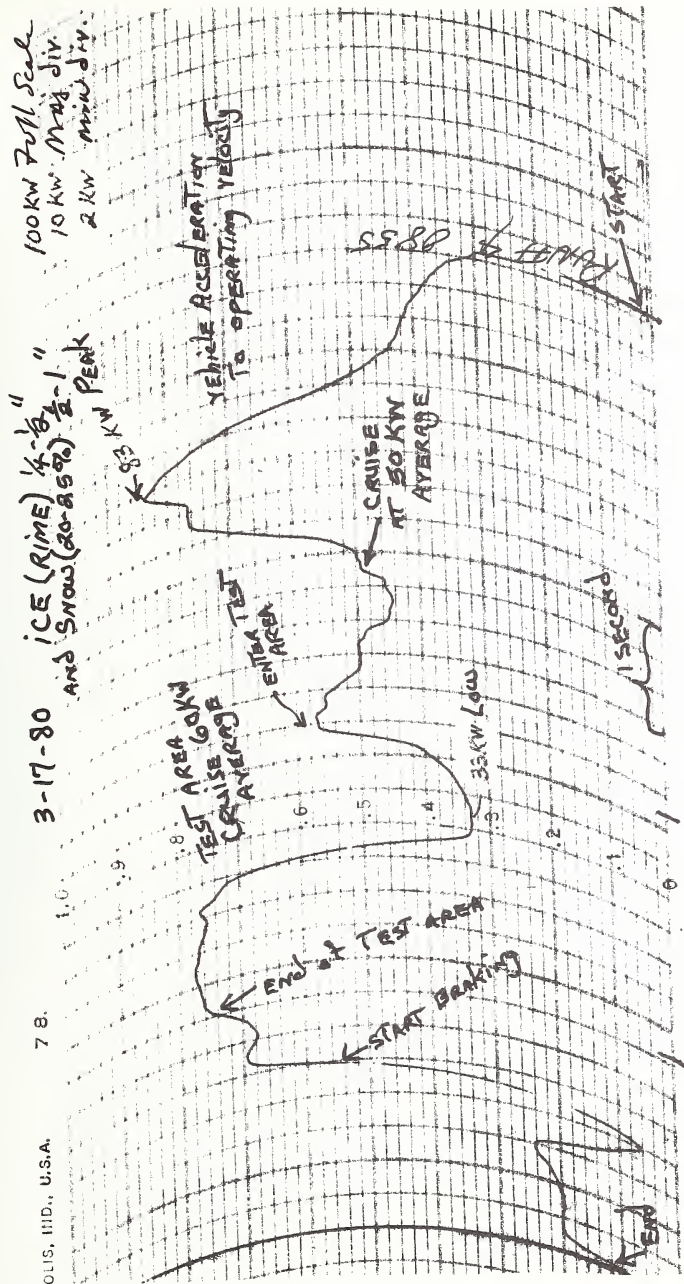 OLIS, IND., U.S.A.
78.
3-17-80
ICE (RIME) 1/4-1/2"
AND SNOW (20-25%) 1/2-1"
100KW Full Scale
10 KW Maj div.
2 KW min div.
1.0
.9
.8
.6
.5
.4
.3
.2
.1
0
83 KW PEAK
VEHICLE ACCELERATION
TO OPERATING VELOCITY
RUN # 4
START
CRUISE
AT 50 KW
AVERAGE
ENTER TEST
AREA
TEST AREA
CRUISE 60KW
AVERAGE
33 KW LOW
1 SECOND
END OF TEST AREA
START BRAKING
END